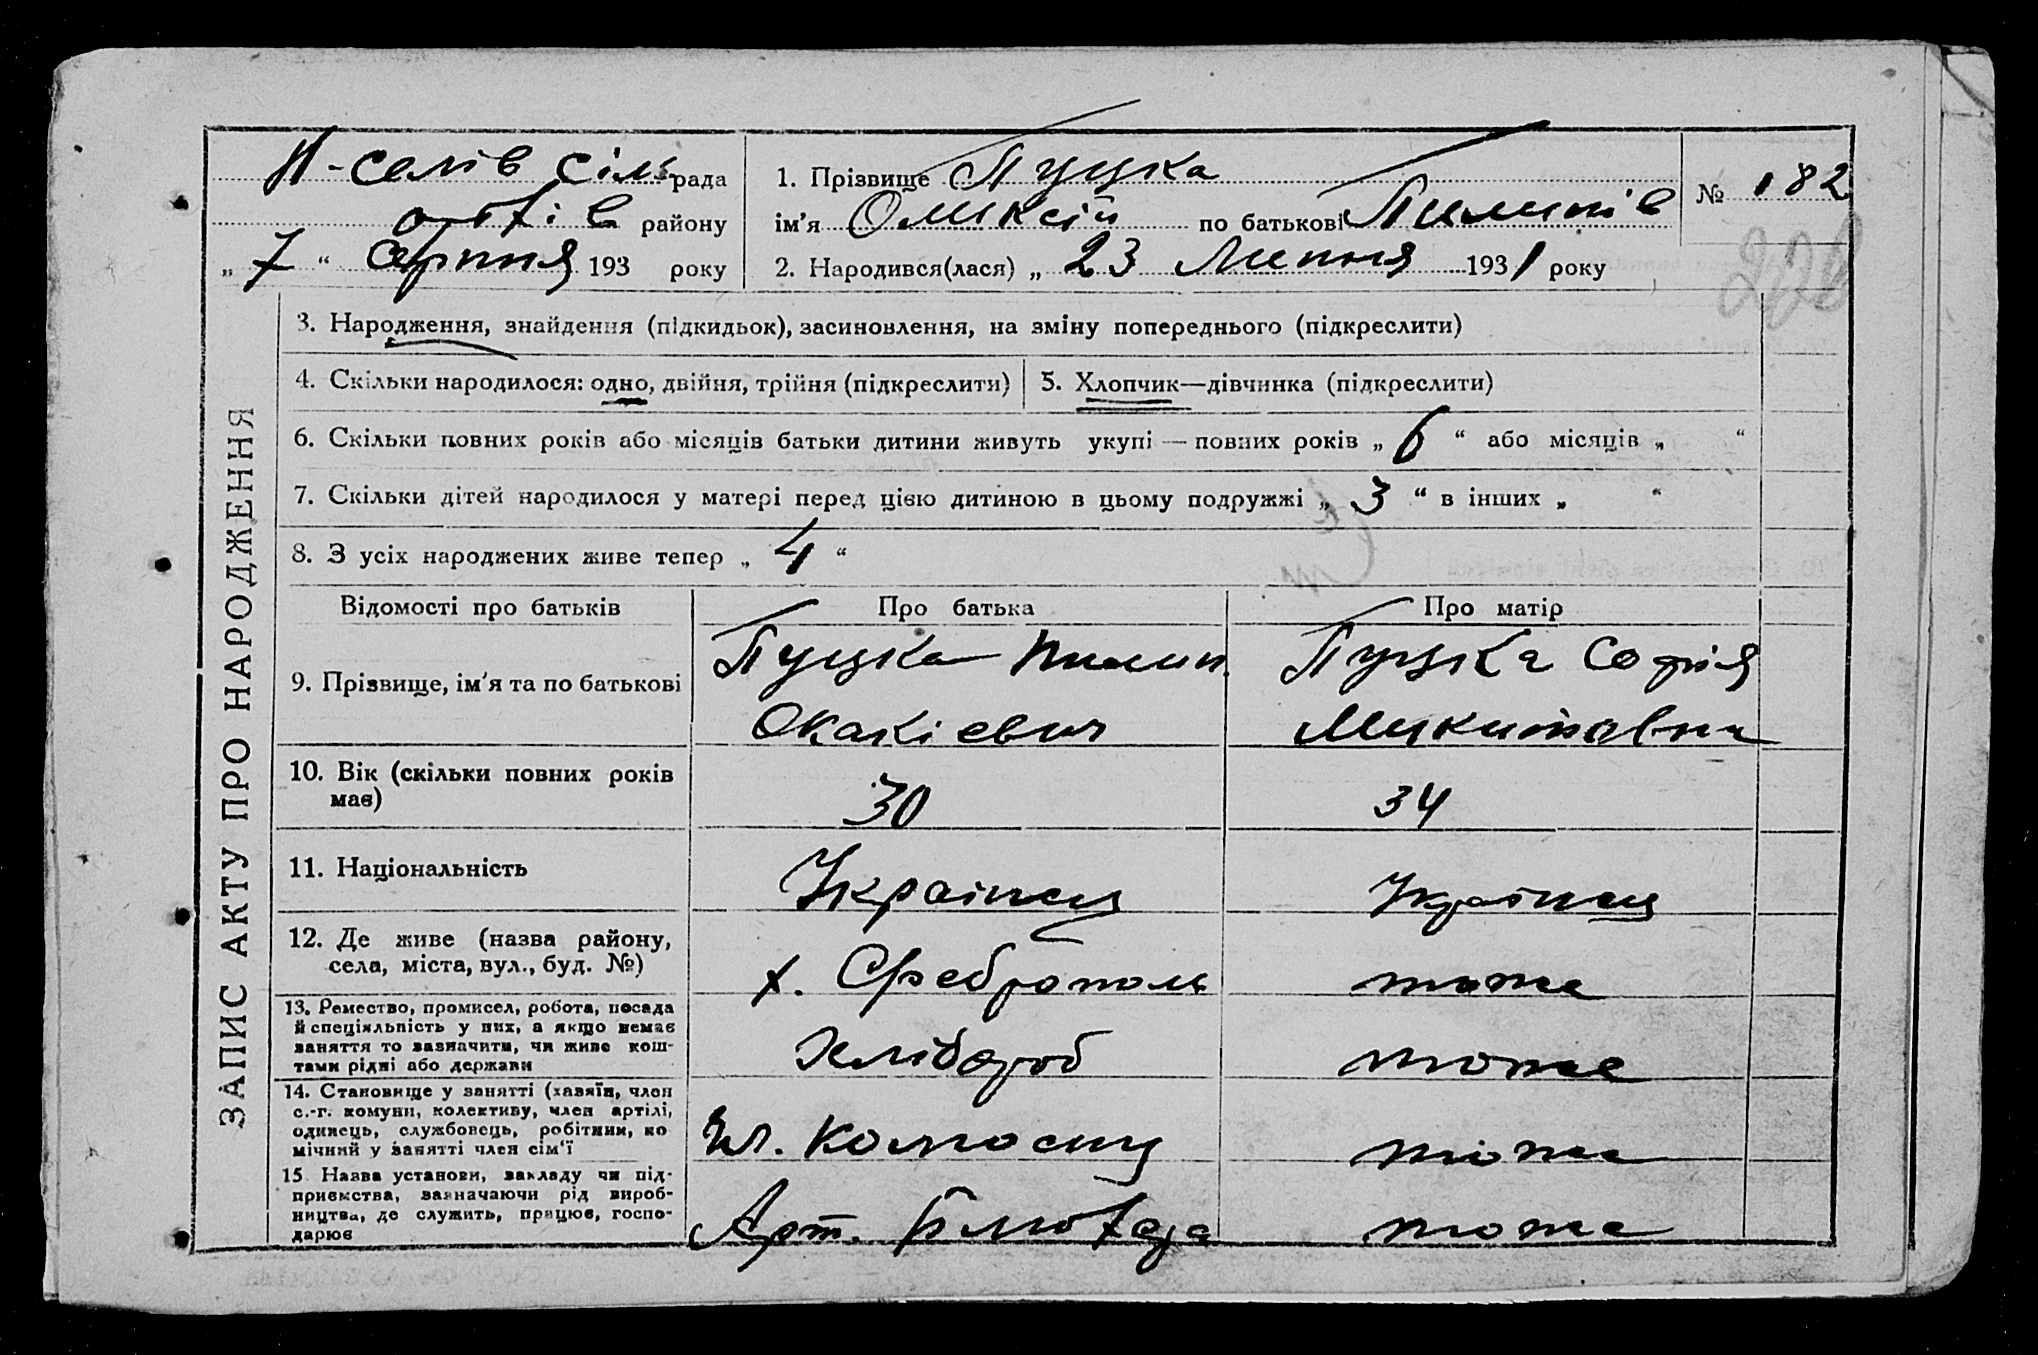 Н-селів сіль рада
району
„ 7 “ серпня 193 року
1. Прізвище Пуцка
ім'я Оликсій по батькові Пилипів
2. Народився(лася) „ 23 Липня 1931 року
№ 182
ЗАПИС АКТУ ПРО НАРОДЖЕННЯ
3. Народження, знайдення (підкидьок), засиновлення, на зміну попереднього (підкреслити)
4. Скільки народилося: одно, двійня, трійня (підкреслити)
5. Хлопчик—дівчинка (підкреслити)
6. Скільки повних років або місяців батьки дитини живуть укупі — повних років „ 6 “ або місяців „ “
7. Скільки дітей народилося у матері перед цією дитиною в цьому подружжі „ 3 “ в інших „ “
8. З усіх народжених живе тепер „ 4 “
Відомості про батьків
Про батька
Про матір
9. Прізвище, ім'я та по батькові
Пуцка Пилип
Окакіевич
Пуцка Софія
Микитовна
10. Вік (скільки повних років
має)
30
34
11. Національність
Украінец
Украінец
12. Де живе (назва району,
села, міста, вул., буд. №)
х. Среброполь
тоже
13. Ремество, промисел, робота, посада
й спеціяльність у них, а якщо немає
заняття то зазначити, чи живе кош-
тами рідні або держави
Хлібороб
тоже
14. Становище у занятті (хазяїн, член
с.-г. комуни, колективу, член артілі,
одинець, службовець, робітник, по
мічний у занятті член сім'ї
Чл. Колгоспу
тоже
15 Назва установи, закладу чи під-
приємства, зазначаючи рід вироб-
ництва, де служить, працює, госпо-
дарює
Арт. Блюхера
тоже